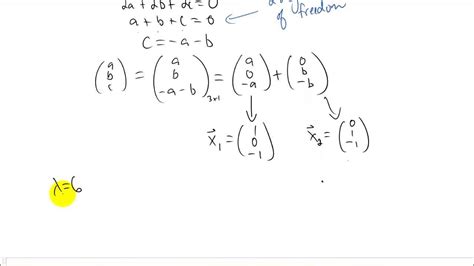 2a+2b+2c=0
a+b+c=0
of freedom
c=-a-b
(a b c) = (a b -a-b)3x1 = (a 0 -a) + (0 b -b)
x⃗1 = (1 0 -1) x⃗2 = (0 1 -1)
λ=6